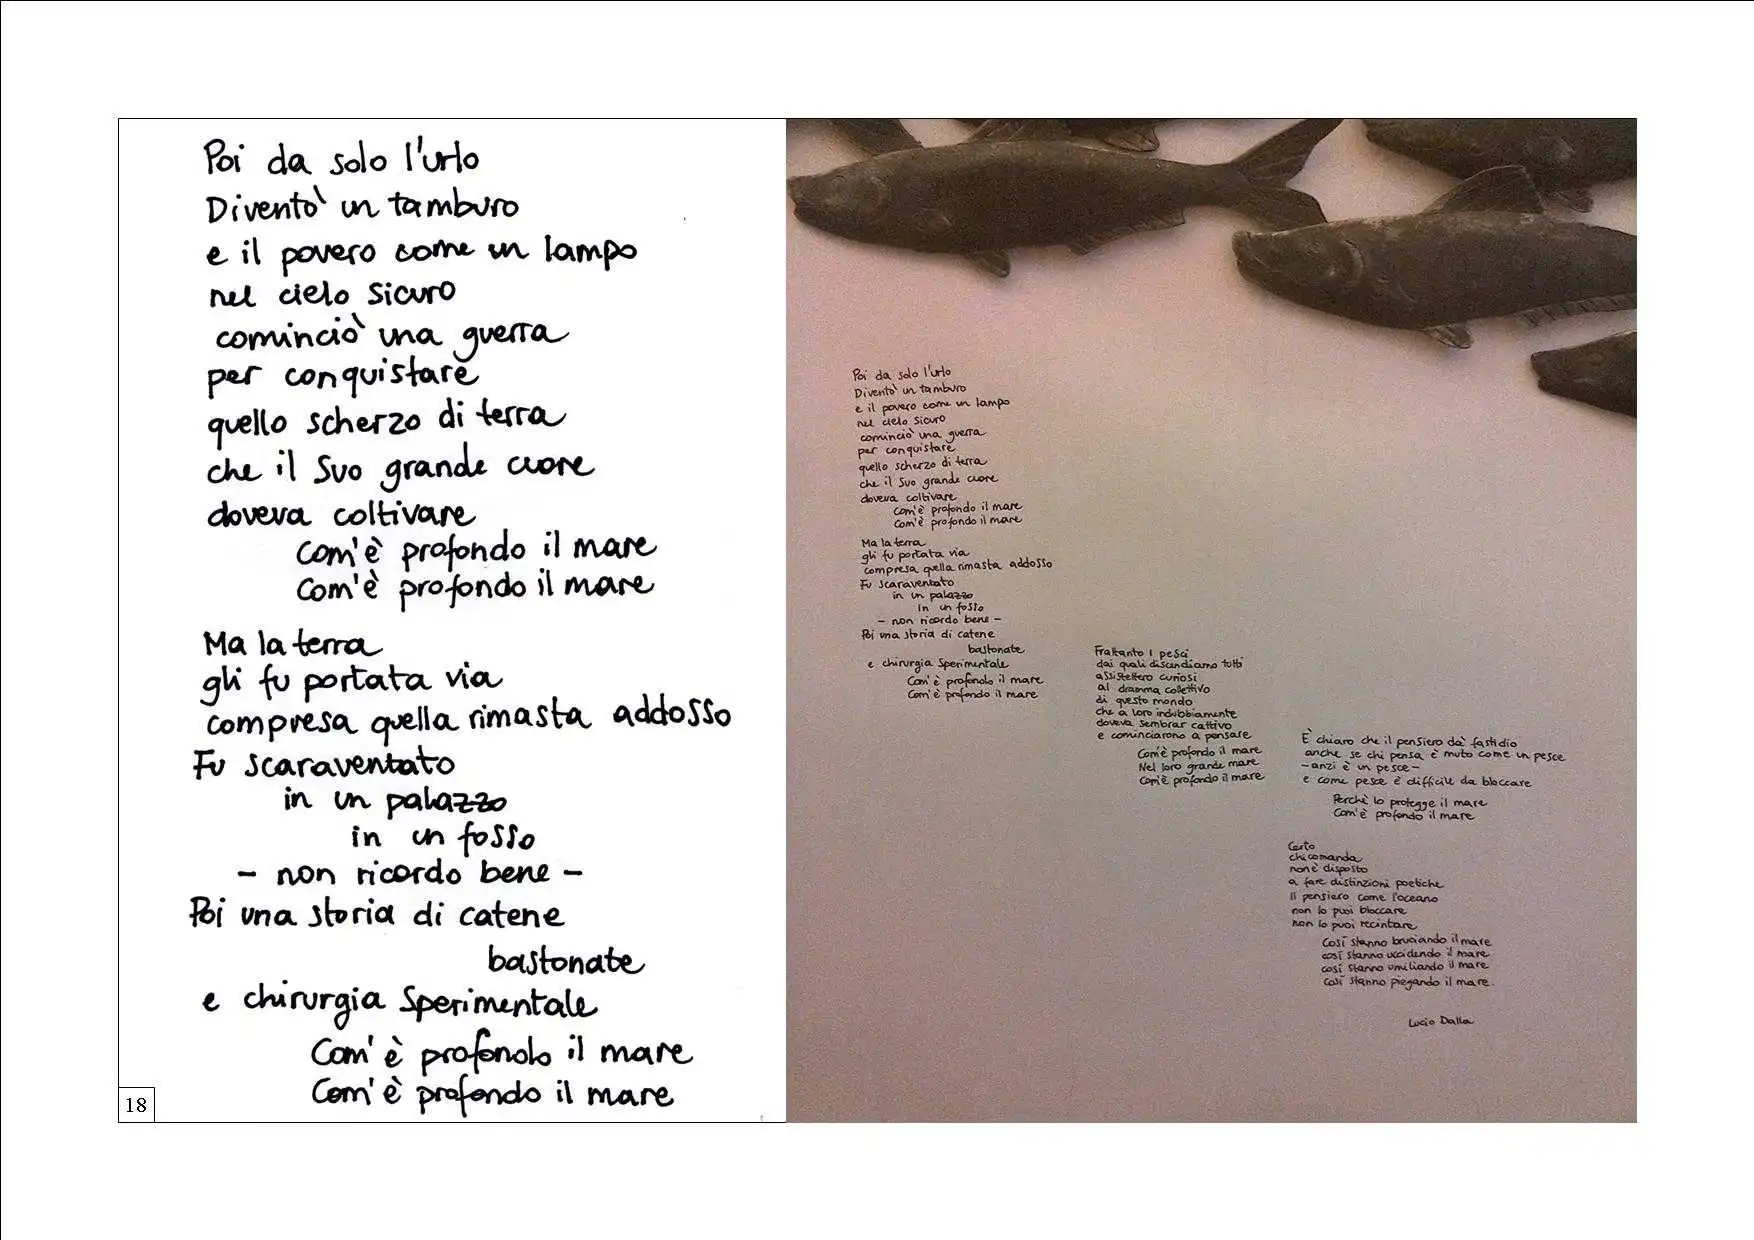 Poi da solo l'urlo
Diventò un tamburo
e il povero come un lampo
nel cielo sicuro
cominciò una guerra
per conquistare
quello scherzo di terra
che il Suo grande cuore
doveva coltivare
Com'è profondo il mare
Com'è profondo il mare
Ma la terra
gli fu portata via
compresa quella rimasta addosso
Fu scaraventato
in un palazzo
in un fosso
- non ricordo bene -
Poi una storia di catene
bastonate
e chirurgia Sperimentale
Com'è profondo il mare
Com'è profondo il mare
18
Poi da solo l'urlo
Diventò un tamburo
e il povero come un lampo
nel cielo sicuro
cominciò una guerra
per conquistare
quello scherzo di terra
che il Suo grande cuore
doveva coltivare
Com'è profondo il mare
Com'è profondo il mare
Ma la terra
gli fu portata via
compresa quella rimasta addosso
Fu scaraventato
in un palazzo
in un fosso
- non ricordo bene -
Poi una storia di catene
bastonate
e chirurgia Sperimentale
Com'è profondo il mare
Com'è profondo il mare
Frattanto I pesci
dai quali discendiamo tutti
assistettero curiosi
al dramma collettivo
di questo mondo
che a loro indubbiamente
doveva sembrar cattivo
e cominciarono a pensare
Com'è profondo il mare
Nel loro grande mare
Com'è profondo il mare
È chiaro che il pensiero dà fastidio
anche se chi pensa è muto come un pesce
- anzi è un pesce -
e come pesce è difficile da bloccare
Perchè lo protegge il mare
Com'è profondo il mare
Certo
chi comanda
non è disposto
a fare distinzioni poetiche
Il pensiero come l'oceano
non lo puoi bloccare
non lo puoi recintare
Così stanno bruciando il mare
così stanno uccidendo il mare
così stanno umiliando il mare
così stanno piegando il mare.
Lucio Dalla